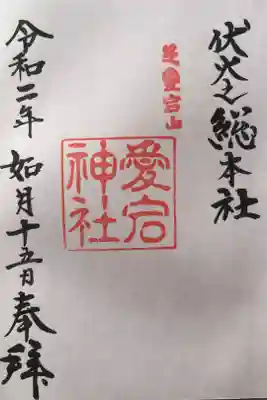 伏火之総本社
芝愛宕山
愛宕神社
令和二年 如月十五日 奉拝